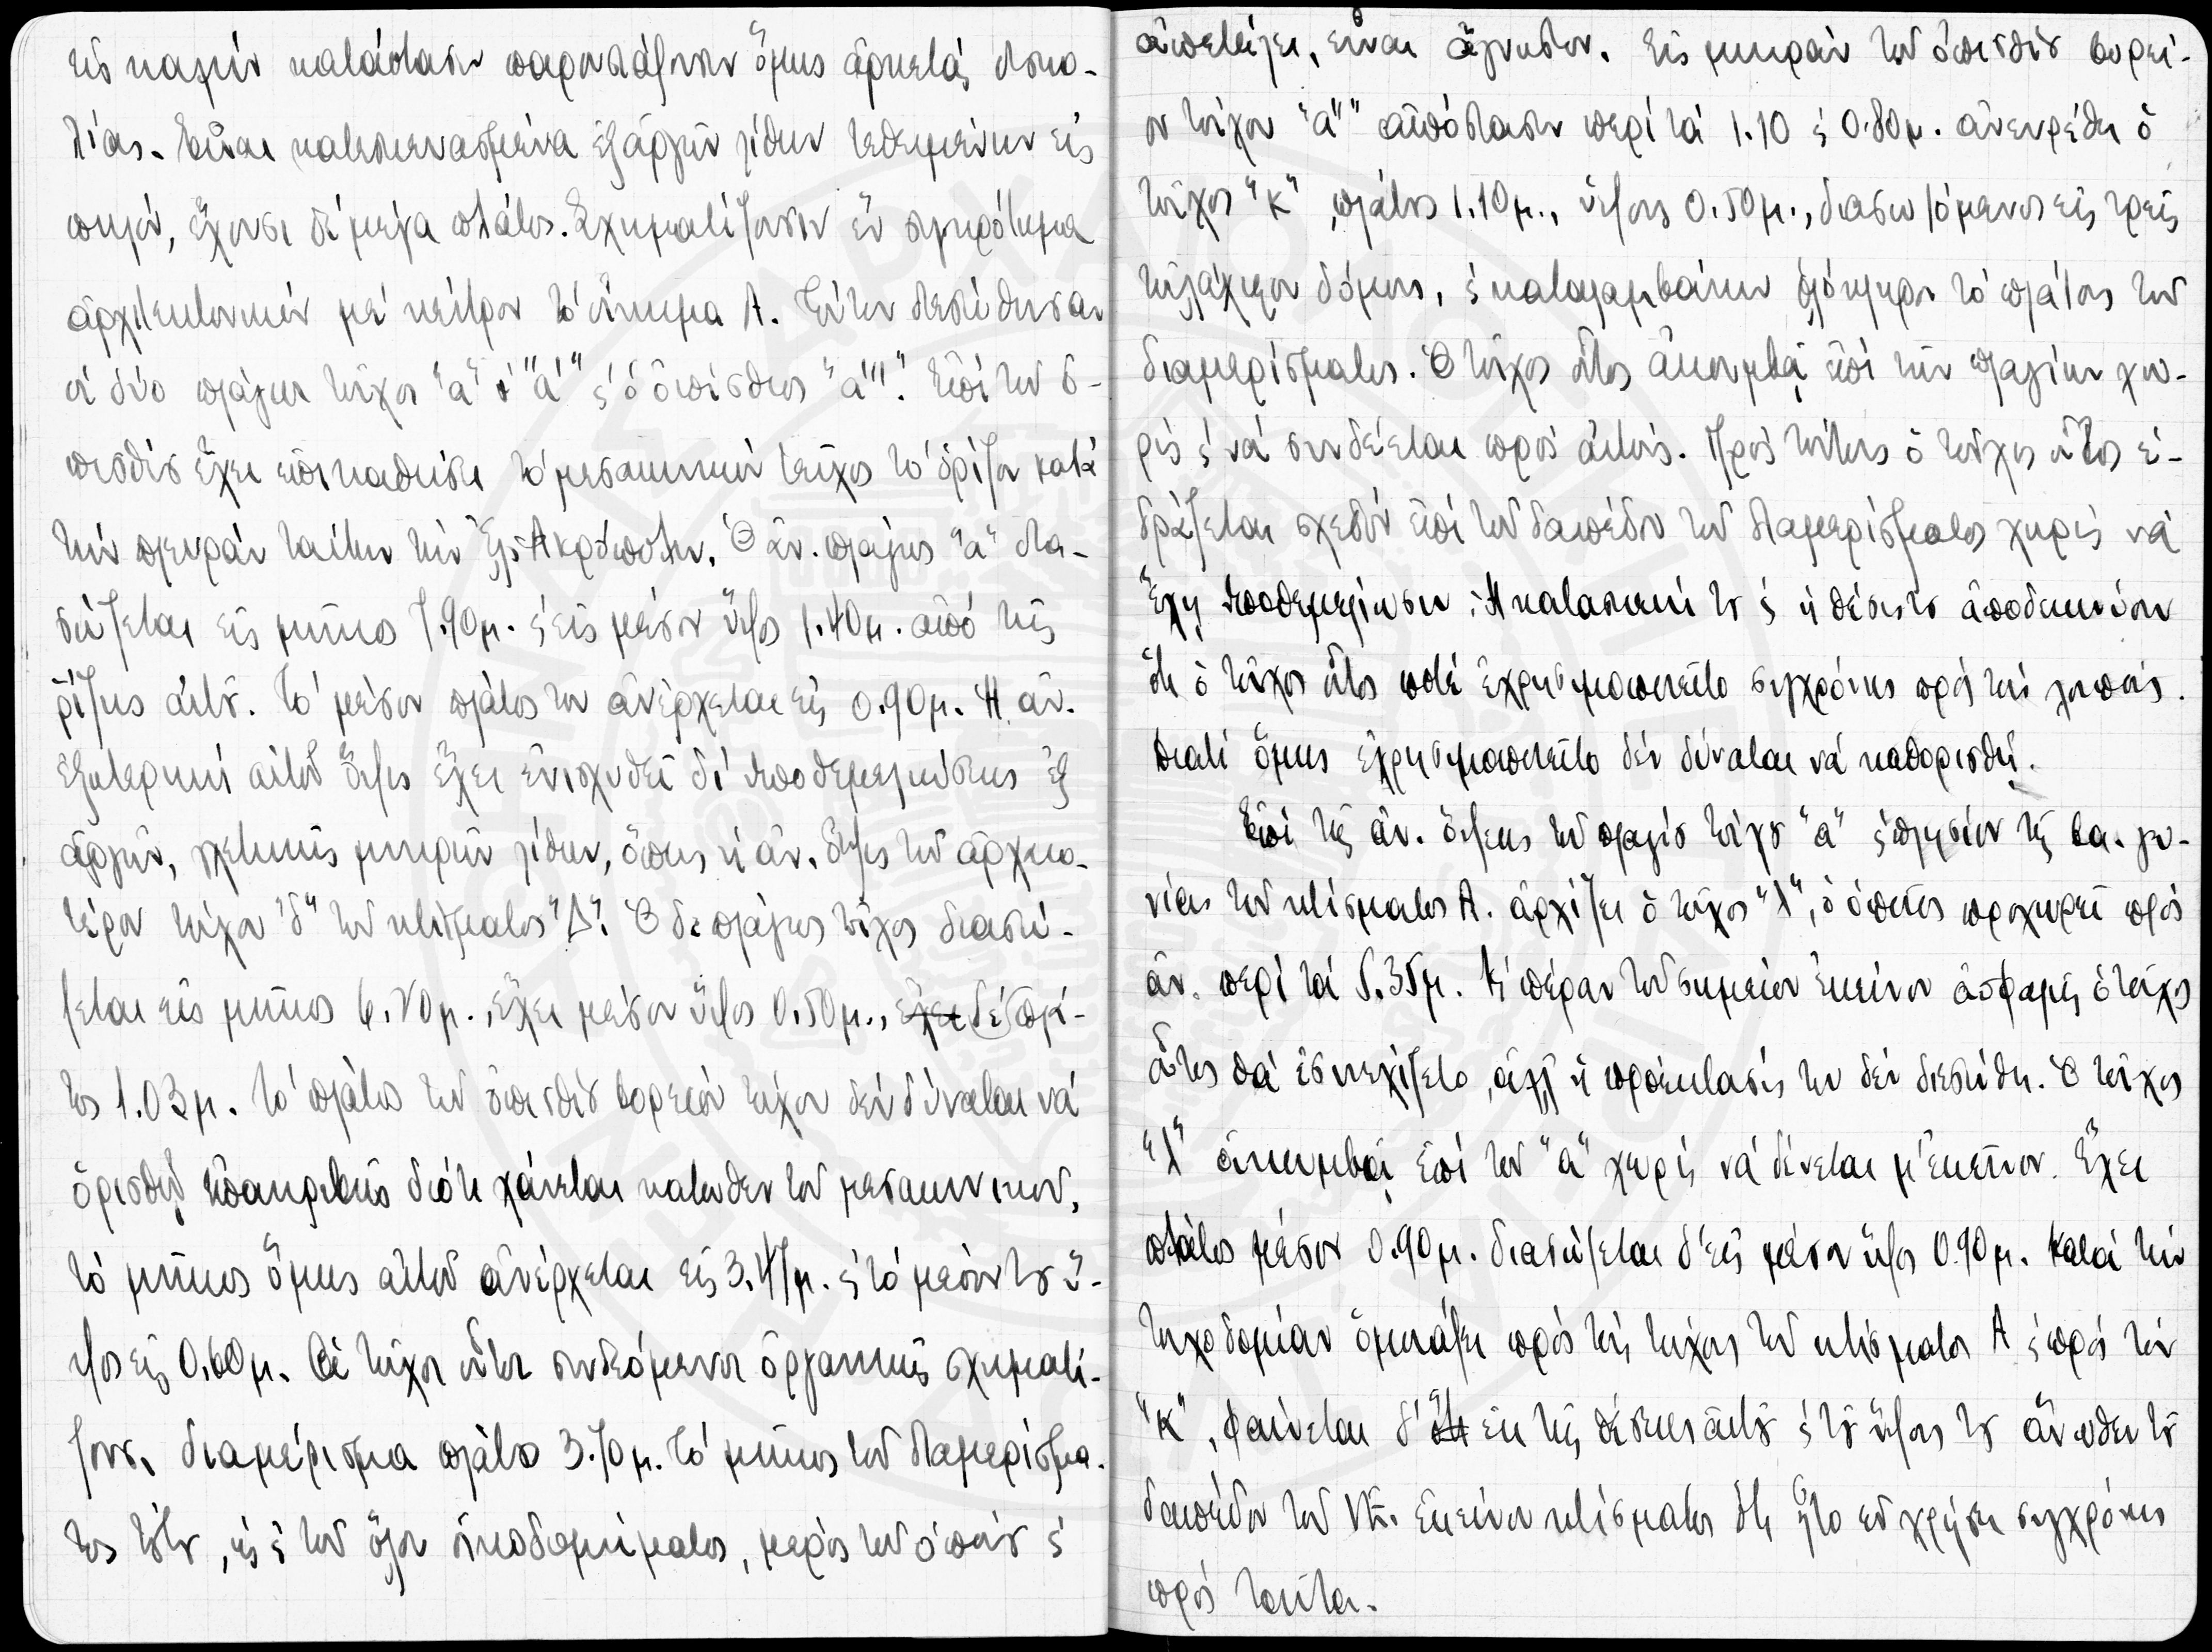 εἰς καλήν κατάστασιν παρουσιάζουσιν ὅμως ἀρκετάς δυσκο-
λίας. Εἶναι κατεσκευασμένα ἐξ ἀργῶν λίθων τεθειμένων εἰς
πηλόν, ἔχουσι δέ μέγα πλάτος. Σχηματίζουσιν ἕν συγκρότημα
ἀρχιτεκτονικόν μέ κέντρον τό οἴκημα Α. Τούτου διεσώθησαν
οἱ δύο πλάγιοι τοῖχοι "α" ϗ "α'" ϗ ὁ ὀπίσθιος "α''". Ἐπί τοῦ ὀ-
πισθίου ἔχει ἐπικαθήσει τό μεσαιωνικόν τεῖχος τό ὁρίζον κατά
τήν πλευράν ταύτην τήν Ἀκρόπολιν. Ὁ ἀν. πλάγιος "α" δια-
σώζεται εἰς μῆκος 7.90μ. ϗ εἰς μέσον ὕψος 1.40μ. ἀπό τῆς
ρίζης αὐτοῦ. Τό μέσον πλάτος του ἀνέρχεται εἰς 0.90μ. Ἡ ἀν.
ἐξωτερική αὐτοῦ ὄψις ἔχει ἐνισχυθεῖ δι' ὑποθεμελιώσεως ἐξ
ἀργῶν, σχετικῶς μικρῶν λίθων, ὅπως ἡ ἀν. ὄψις τοῦ ἀρχαιο-
τέρου τοίχου "δ" τοῦ κτίσματος "Δ". Ὁ δε πλάγιος τοῖχος διασώ-
ζεται εἰς μῆκος 6.70μ., ἔχει μέσον ὕψος 0.50μ., ἔχει δέ πλά-
τος 1.03μ. Τό πλάτος τοῦ ὀπισθίου βορείου τοίχου δέν δύναται νά
ὁρισθῇ ἐπακριβῶς διότι χάνεται κάτωθεν τοῦ μεσαιωνικοῦ,
τό μῆκος ὅμως αὐτοῦ ἀνέρχεται εἰς 3.47μ. ϗ τό μέσον του ὕ-
ψος εἰς 0.60μ. Οἱ τοῖχοι οὗτοι συνδεόμενοι ὀργανικῶς σχηματί-
ζουν διαμέρισμα πλάτος 3.70μ. Τό μῆκος τοῦ διαμερίσμα-
τος τούτου, ὡς ϗ τοῦ ὅλου οἰκοδομήματος, μέρος τοῦ ὁποίου ϗ
ἀπετέλει, εἶναι ἄγνωστον. Εἰς μικράν τοῦ ὀπισθίου βορεί-
ου τοίχου "α''" ἀπόστασιν περί τά 1.10 ϗ 0.80μ. ἀνευρέθη ὁ
τοῖχος "κ", πλάτος 1.10μ., ὕψους 0.50μ., διασωζόμενος εἰς τρεῖς
τοὐλάχιστον δόμους, ϗ καταλαμβάνων ὁλόκληρον τό πλάτος τοῦ
διαμερίσματος. Ὁ τοῖχος οὗτος ἀκουμβᾷ ἐπί τῶν πλαγίων χω-
ρίς ϗ νά συνδέεται πρός αὐτούς. Πρός τούτοις ὁ τοῖχος οὗτος ἑ-
δράζεται σχεδόν ἐπί τοῦ δαπέδου τοῦ διαμερίσματος χωρίς νά
ἔχῃ ὑποθεμελίωσιν. Ἡ κατασκευή του ϗ ἡ θέσις του ἀποδεικνύουν
ὅτι ὁ τοῖχος οὗτος ποτέ ἐχρησιμοποιεῖτο συγχρόνως πρός τούς λοιπούς.
Διατί ὅμως ἐχρησιμοποιεῖτο δέν δύναται νά καθορισθῇ.
Ἐπί τῆς ἀν. ὄψεως τοῦ πλαγίου τοίχου "α" ϗ πλησίον τῆς βα. γω-
νίας τοῦ κτίσματος Α. ἀρχίζει ὁ τοῖχος "λ", ὁ ὁποῖος προχωρεῖ πρός
ἀν. περί τά 5.35μ. Κ' πέραν τοῦ σημείου ἐκείνου ἀσφαλῶς ὁ τοῖχος
οὗτος θά ἐσυνεχίζετο, ἀλλ' ἡ προέκτασίς του δέν διεσώθη. Ὁ τοῖχος
"λ" ἀκουμβᾷ ἐπί τοῦ "α" χωρίς νά δένεται μ' ἐκεῖνον. Ἔχει
πλάτος μέσον 0.90μ. διασώζεται δ' εἰς μέσον ὕψος 0.90μ. Κατά τήν
τοιχοδομίαν ὁμοιάζει πρός τούς τοίχους τοῦ κτίσματος Α ϗ πρός τόν
"κ", φαίνεται δ' ὅτι ἐκ τῆς θέσεως αὐτοῦ ϗ τοῦ ὕψους του ἄνωθεν τοῦ
δαπέδου τοῦ ἐκείνου κτίσματος ὅτι ἦτο ἐν χρήσει συγχρόνως
πρός ταῦτα.